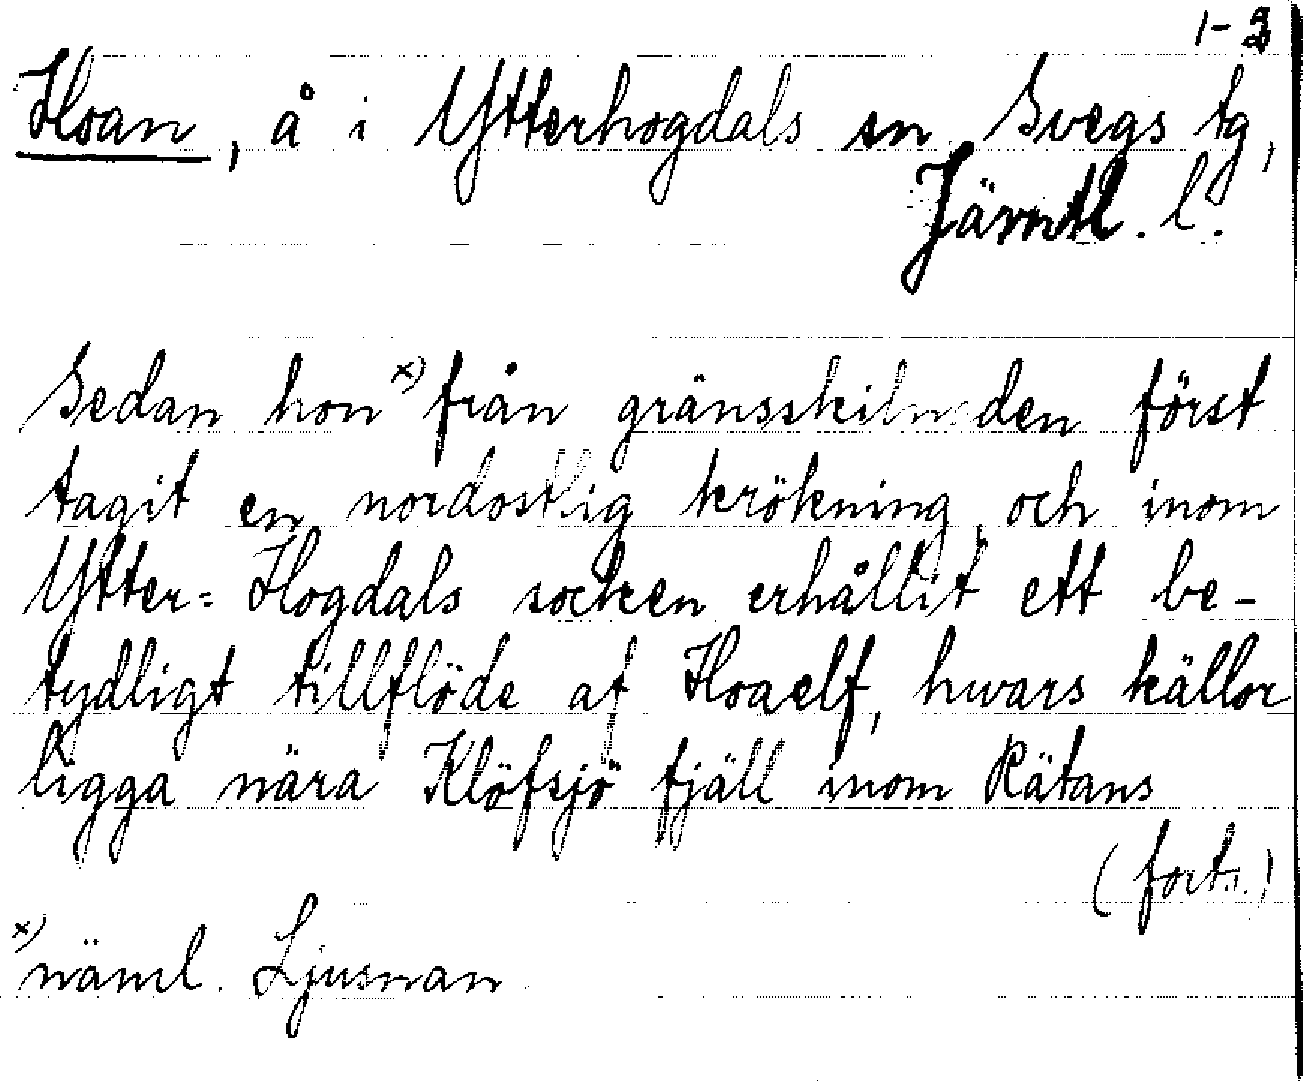 1-3
Hoan, å i Ytterhogdals sn, Svegs tg,
Jämtl. l.
Sedan hon x) från gränsskilnaden först
tagit en nordostlig krökning, och inom
Ytter=Hogdals socken erhållit ett be-
tydligt tillflöde af Hoaelf, hwars källor
ligga nära Klöfsjö fjäll inom Rätans
(forts.)
x) näml. Ljusnan